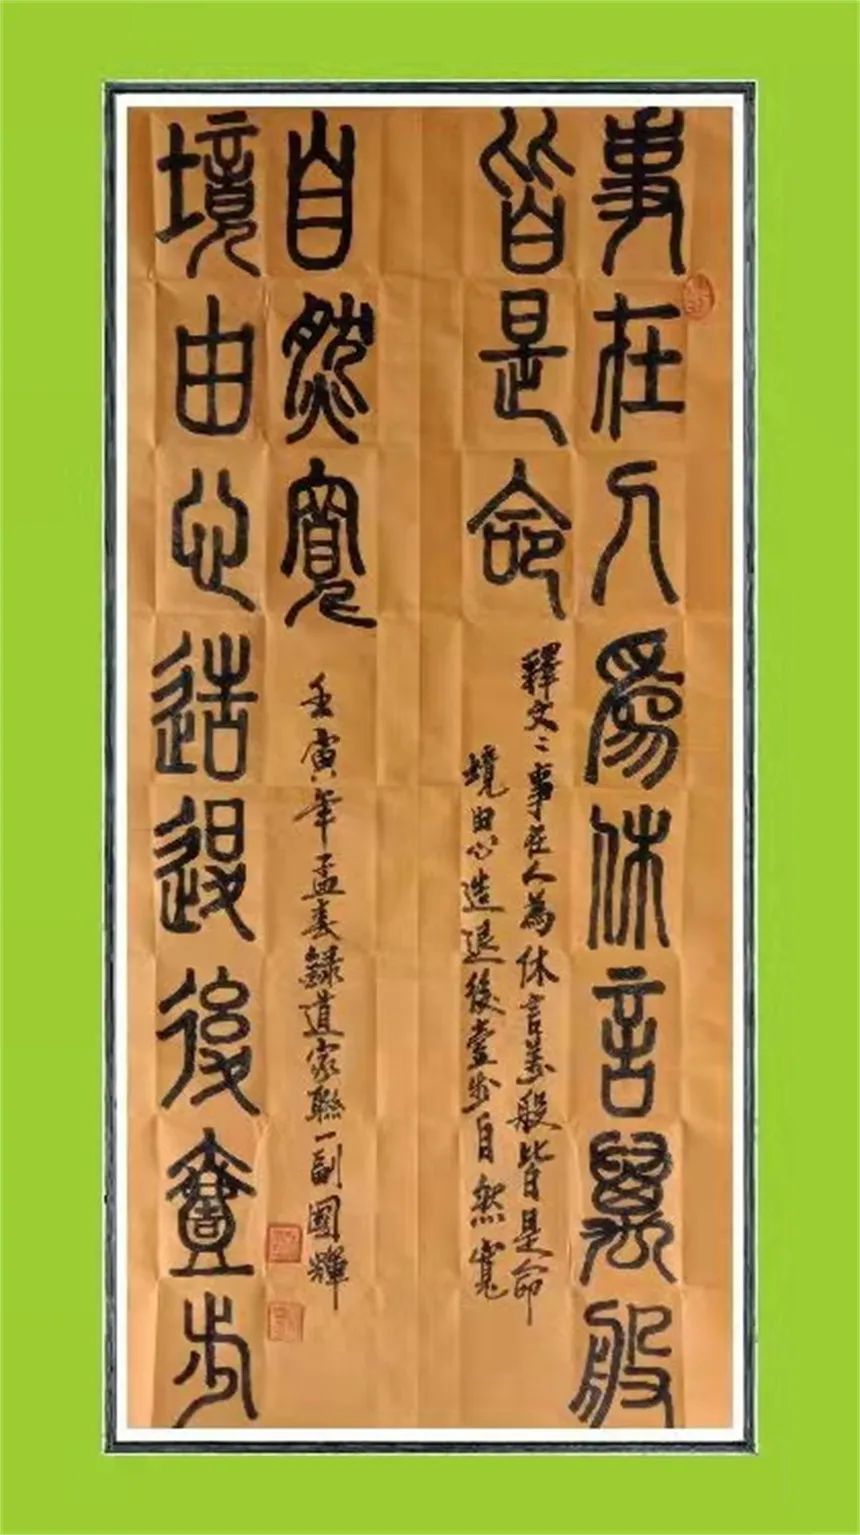 事在人為休言萬般
皆是命
釋文：事在人為休言萬般皆是命
境由心造退後壹步自然寬
境由心造退後壹步
自然寬
壬寅年孟春録道家聯一副國輝